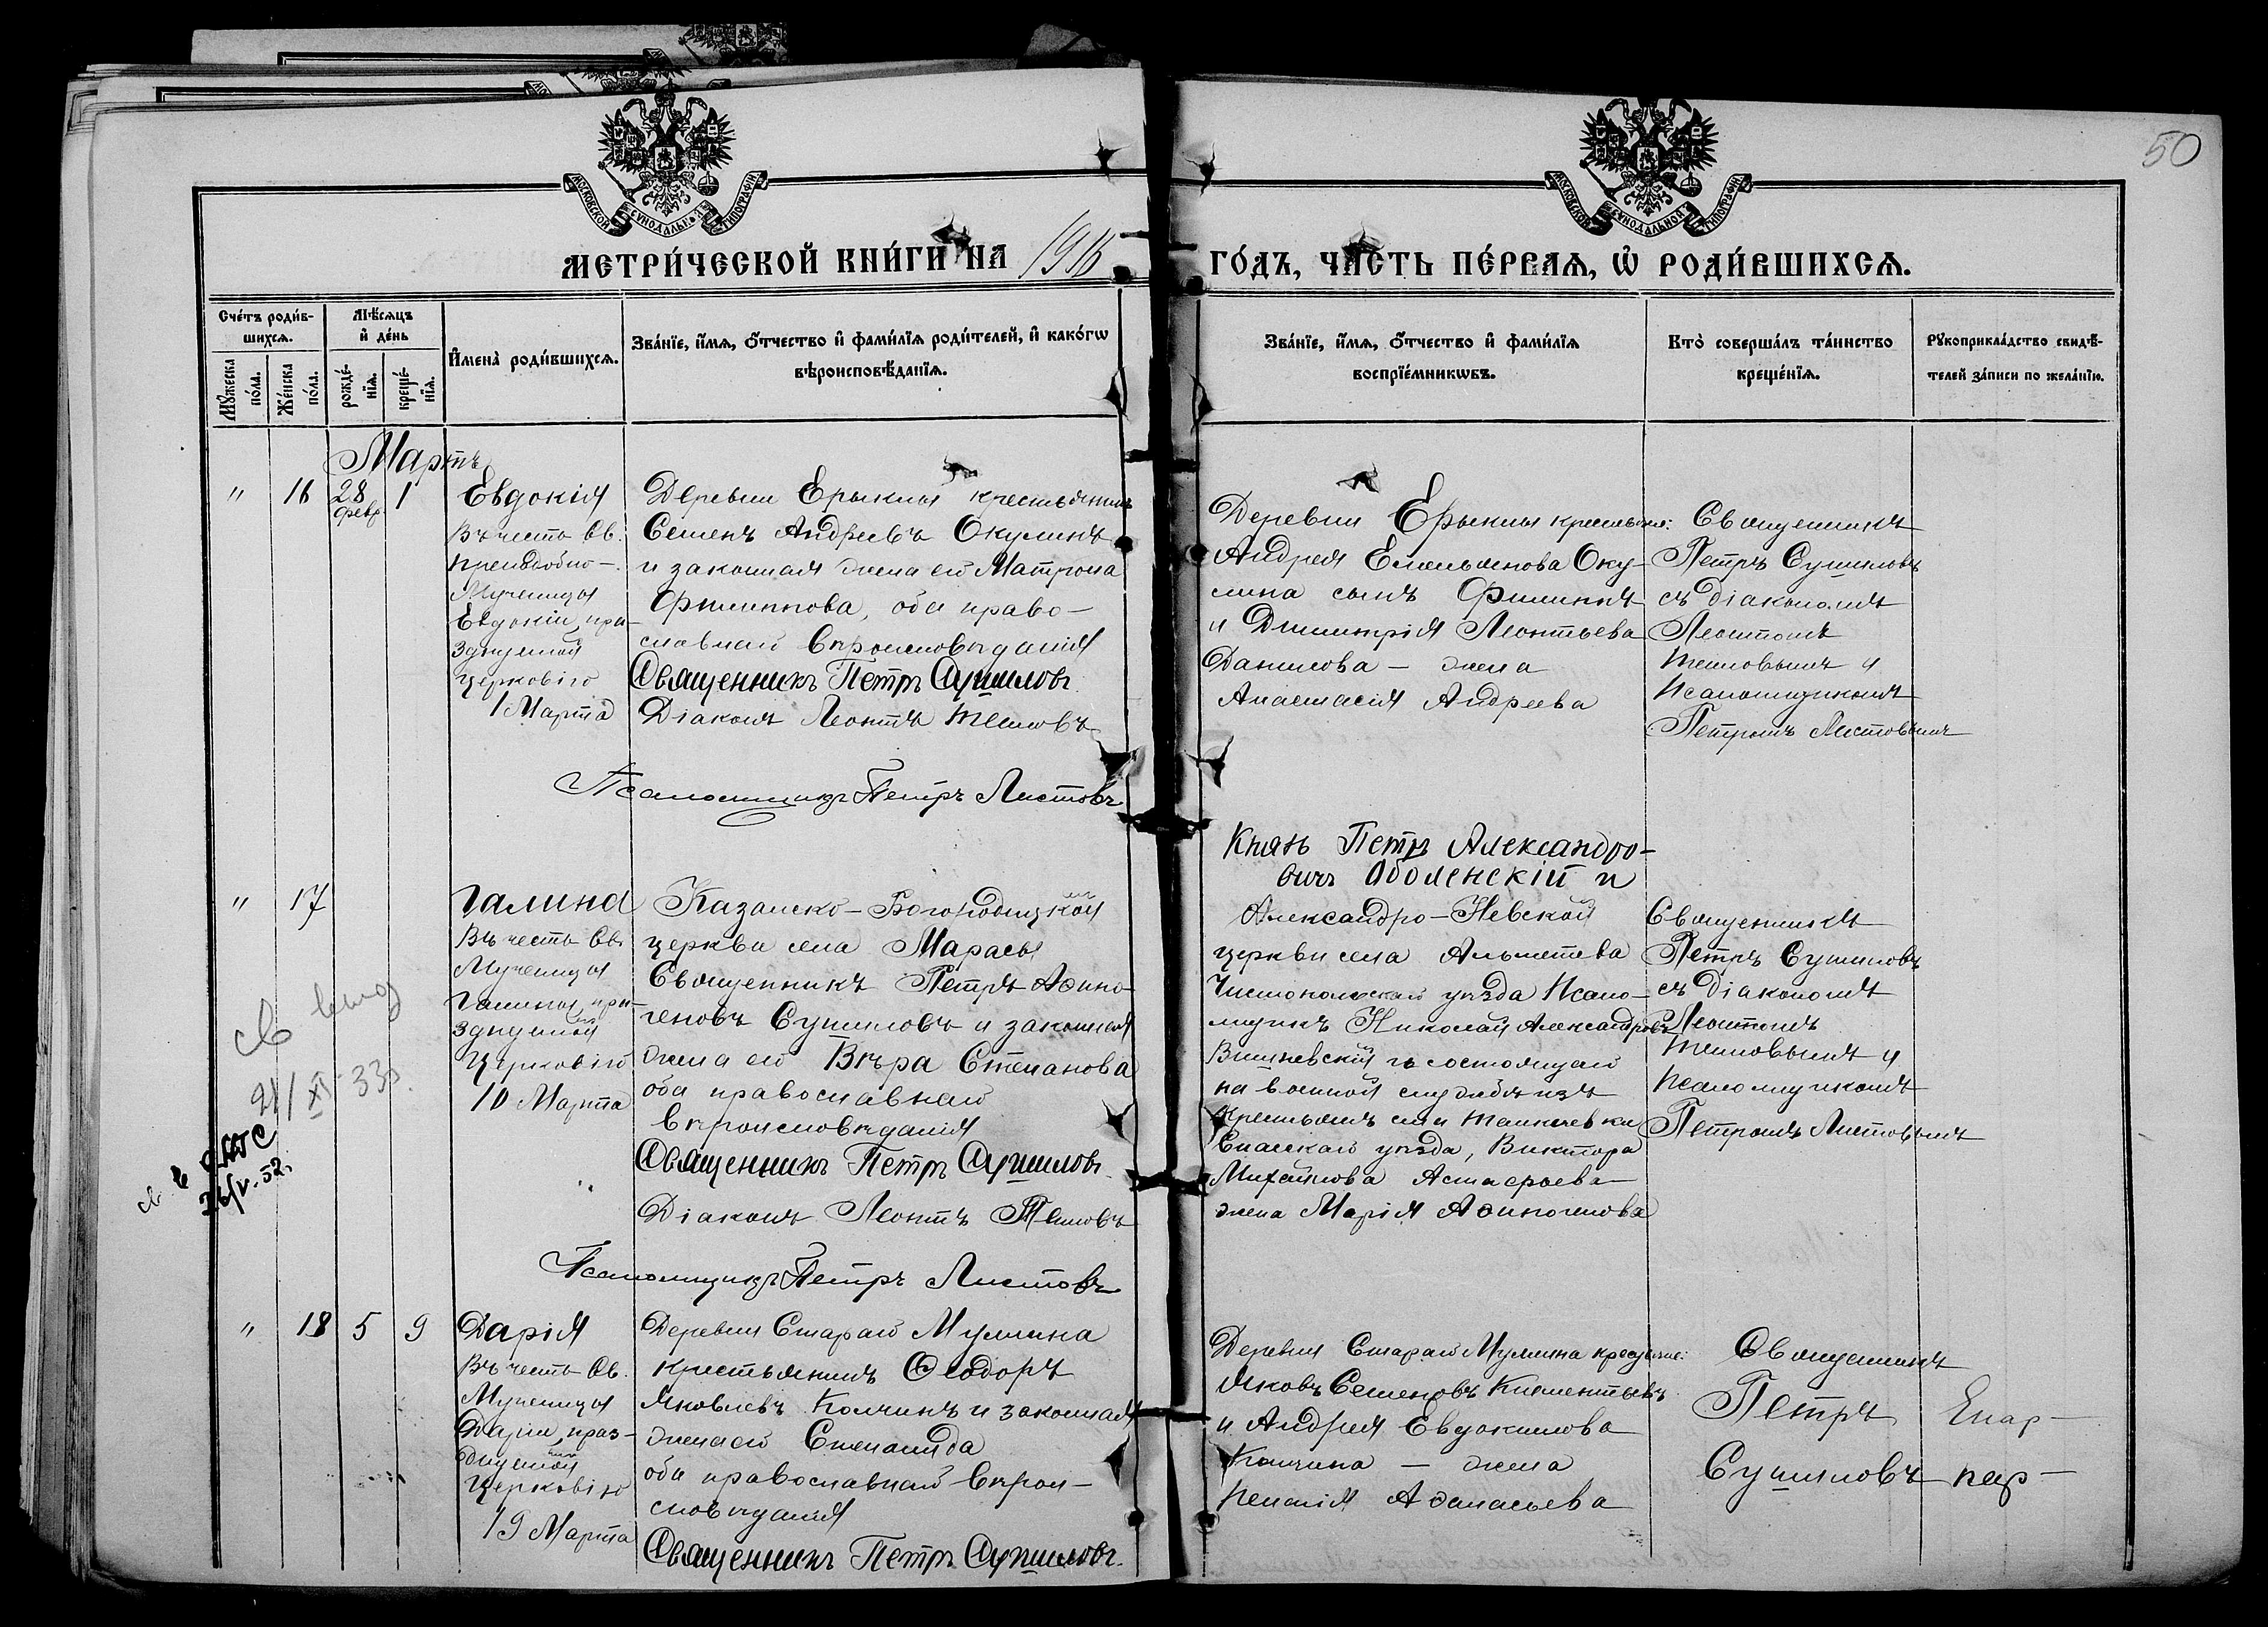 50
МОСКОВСКОЙ СѴНОДАЛЬНОЙ ТИПОГРАФІИ
МОСКОВСКОЙ СѴНОДАЛЬНОЙ ТИПОГРАФІИ
МЕТРИ́ЧЕСКОЙ КНИ́ГИ НА 1916 ГО́ДЪ, ЧАСТЬ ПЕ́РВАѦ, Ѡ РОДИ́ВШИХСѦ.
Сче́тъ роди́в-
шихсѧ.
Мѣ́сѧцъ
и҆ де́нь
Мꙋ́жеска
по́ла.
Же́нска
по́ла.
рожде́-
нїѧ.
креще́-
нїѧ.
И҆мена̀ роди́вшихсѧ.
Зва́нїе, и҆́мѧ, ѻ҆́тчество и҆ фами́лїѧ роди́телей, и҆ како́гѡ
вѣроисповѣ́данїѧ.
Зва́нїе, и҆́мѧ, ѻ҆́тчество и҆ фами́лїѧ
воспрїе́мникѡвъ.
Кто̀ соверша́лъ та́инство
креще́нїѧ.
Рꙋкоприкла́дство свидѣ́-
телей за́писи по жела́нїю.
Мартъ
" 16 28 февр 1
Евдокія
Въ честь Св.
преподобно-
Мученицы
Евдокіи, пра-
зднуемой
церковію
1 Марта
Деревни Ерыклы крестьянинъ
Семенъ Андреевъ Окулинъ
и законная жена его Матрона
Филиппова, оба право-
славнаго вероисповѣданія
Священникъ Петръ Сушиловъ.
Діаконъ Леонтъ
Псаломщикъ Петръ Листовъ
Деревни Ерыклы крестьяне:
Андрея Емельянова Оку-
лина сынъ Филиппъ
и Димитрія Леонтьева
Данилова — жена
Анастасія Андреева
Священникъ
Петръ Сушиловъ
съ діакономъ
Леонтомъ
и
псаломщикомъ
Петромъ Листовымъ
" 17
Галина
Въ честь Св.
Мученицы
Галины, пра-
зднуемой
церковію
10 Марта
Казанско-Богородицкой
церкви села Марасы
Священникъ Петръ Аѳино-
геновъ Сушиловъ и законная
жена его Вѣра Степанова
оба православнаго
вѣроисповѣданія
Священникъ Петръ Сушиловъ.
Діаконъ Леонтъ
Псаломщикъ Петръ Листовъ
Князь Петръ Александро-
вичъ Оболенскій и
Александро-Невской
церкви села Альметева
Чистопольскаго уѣзда Псало-
мщикъ Николай Александровъ
Вишневскій и состоящаго
на военной службѣ изъ
крестьянъ села
Спасскаго уѣзда, Виктора
Михайлова Астафьева
жена Марія Аѳиногенова
Священникъ
Петръ Сушиловъ
съ діакономъ
Леонтомъ
и
псаломщикомъ
Петромъ Листовымъ
21/XI 33г.
26/V. 52.
" 18 5 9
Дарія
Въ честь Св.
Мученицы
Даріи, праз-
днуемой
церковію
19 Марта
Деревни Стараго Мулина
крестьянинъ Ѳеодоръ
Яковлевъ Колчинъ и законная
жена его Степанида
оба православнаго вѣрои-
сповѣданія
Священникъ Петръ Сушиловъ.
Деревни Стараго Мулина крестьяне:
Яковъ Семеновъ Клементьевъ
и Андрея Евдокимова
Колчина — жена
Аѳанасьева
Священникъ
Петръ
Сушиловъ